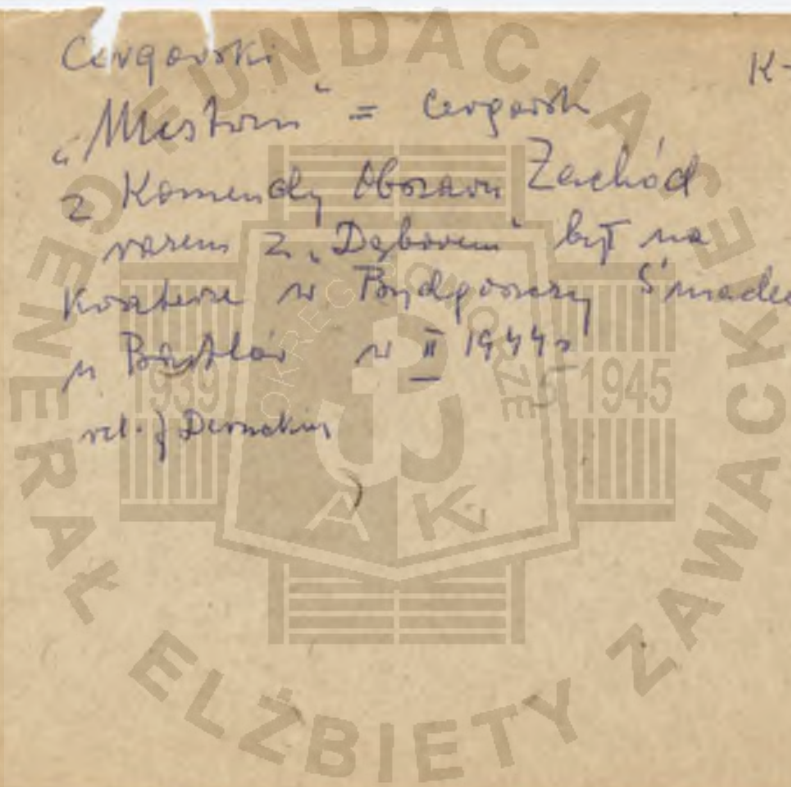 Cergowski
K-
"Mestwin" = Cergowsk
z Komendy Obszaru Zachód
razem z "Dęborem" był na
kwaterze w Bydgoszczy Śniadec
u w II 1944 r
rel. J Dernakin
FUNDACJA GENERAŁ ELŻBIETY ZAWACKIEJ
OKRĘG POMORZE
1939 1945
AK